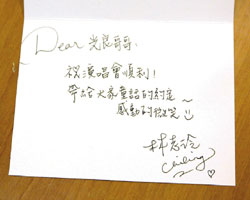 Dear 光良哥哥:
祝演唱會順利!
帶給大家童話的約定~
感動的微笑
林志玲
Chiling